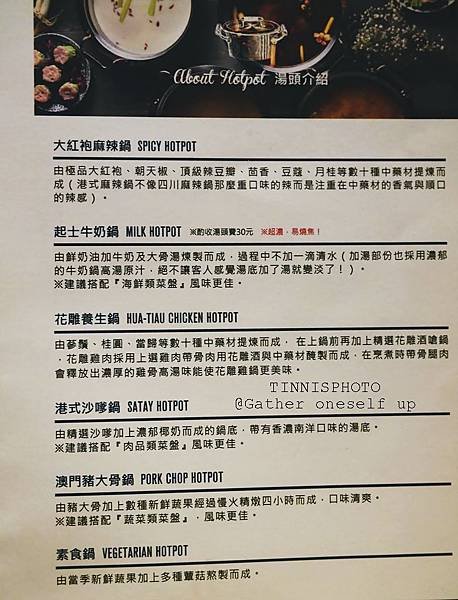 About Hotpot 湯頭介紹
大紅袍麻辣鍋 SPICY HOTPOT
由極品大紅袍、朝天椒、頂級辣豆瓣、茴香、豆蔻、月桂等數十種中藥材提煉而
成（港式麻辣鍋不像四川麻辣鍋那麼重口味的辣而是注重在中藥材的香氣與順口
的辣感）。
起士牛奶鍋 MILK HOTPOT ※酌收湯頭費30元 ※超濃，易燒焦！
由鮮奶油加牛奶及大骨湯燉製而成，過程中不加一滴清水（加湯部份也採用濃郁
的牛奶鍋高湯原汁，絕不讓客人感覺湯底加了湯就變淡了！）。
※建議搭配『海鮮類菜盤』風味更佳。
花雕養生鍋 HUA-TIAU CHICKEN HOTPOT
由蔘鬚、桂圓、當歸等數十種中藥材提煉而成， 在上鍋前再加上精選花雕酒嗆鍋
，花雕雞肉採用上選雞肉帶骨肉用花雕酒與中藥材醃製而成，在烹煮時帶骨腿肉
會釋放出濃厚的雞骨高湯味能使花雕雞鍋更美味。
TINNISPHOTO
@Gather oneself up
港式沙嗲鍋 SATAY HOTPOT
由精選沙嗲加上濃郁椰奶而成的鍋底，帶有香濃南洋口味的湯底。
※建議搭配『肉品類菜盤』風味更佳。
澳門豬大骨鍋 PORK CHOP HOTPOT
由豬大骨加上數種新鮮蔬果經過慢火精燉四小時而成，口味清爽。
※建議搭配『蔬菜類菜盤』，風味更佳。
素食鍋 VEGETARIAN HOTPOT
由當季新鮮蔬果加上多種蕈菇熬製而成。